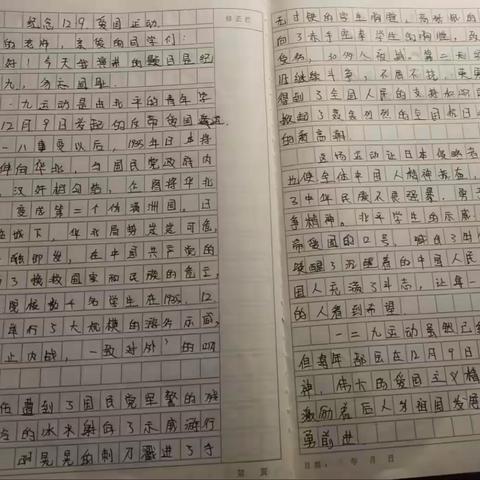 纪念129爱国运动
的老师，亲爱的同学们：
好！今天我演讲的题目是纪
九，勿忘国耻
一九运动是由北平的青年学
12月9日发起的反帝爱国
一八事变以后，1935年日本将
伸向华北，
国民党政府内
汉奸相勾结，企图将华北
变成第二个伪满洲国。日
城下，华北局势岌岌可危，
触即发，在中国共产党的
了挽救国家和民族的危亡，
名学生在1935.12
举行了大规模的游行示威，
止内战，一致对外”的口
遭到了国民党军警的
的冰水射向了示威游行
晃晃的刺刀戳进了手
无寸铁的学生胸膛，
向了赤手空拳学生的
受伤，30何人被
继续斗争，不屈不挠，
得到了全国人民的支持和
掀起了轰轰烈烈的全国抗日
的新高潮。
这场运动让日本侵略者
使全体中国人精神
了中华民族不畏强暴，勇
争精神。北平学生的示威
帝爱国的口号，
唤醒了沉睡着的中国人民
国人充满了斗志，让每一
的人看到希望
一二九运动虽然已
但每年都会在12月9日
神，伟大的爱国主义精
激励着后人为祖国发
勇前进。
第 页
日期： 年 月 日